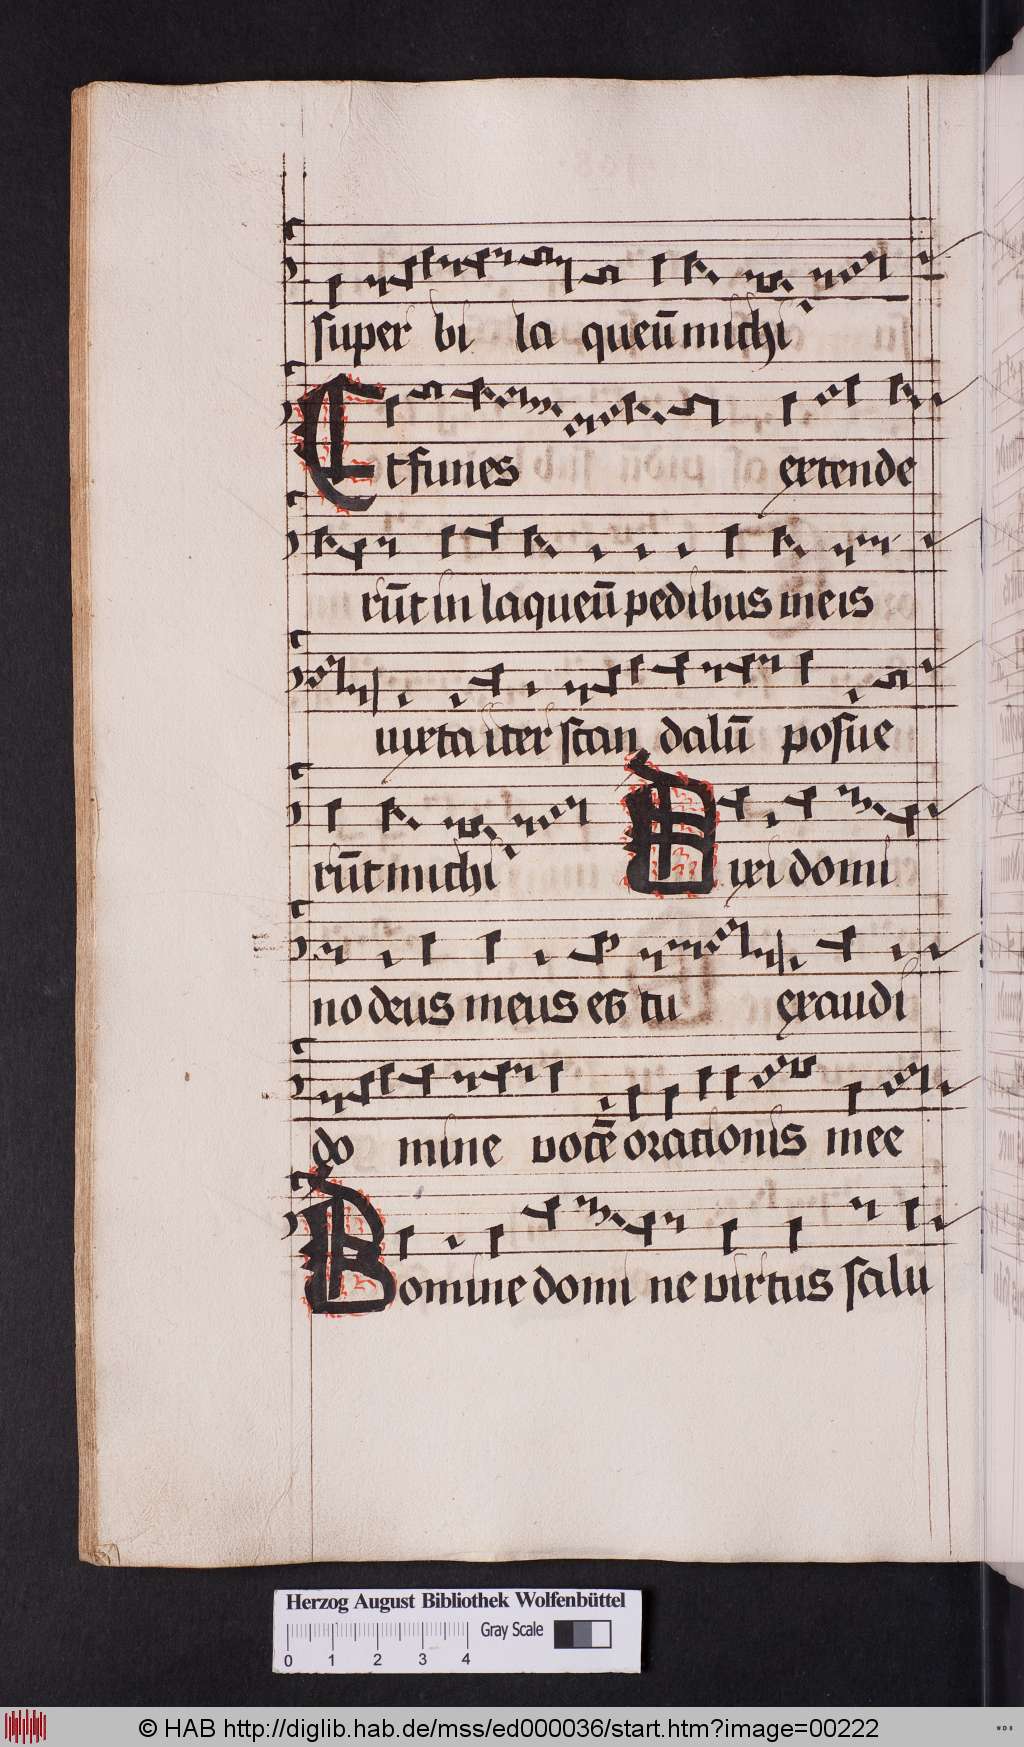 super bi la queū michi
Et funes extende
rūt in laqueū pedibus meis
iuxta iter scan dalū posue
rūt michi Dixi domi
no deus meus es tu exaudi
do mine vocē orationis mee
Domine domi ne virtus salu
Herzog August Bibliothek Wolfenbüttel
Gray Scale
0 1 2 3 4
© HAB http://diglib.hab.de/mss/ed000036/start.htm?image=00222